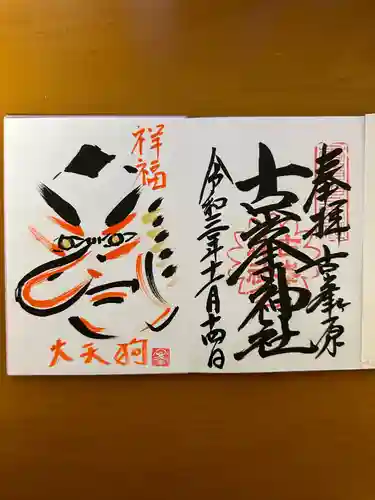 奉拝
古峯ヶ原
古峯神社
令和三年十一月十四日
祥福
大天狗